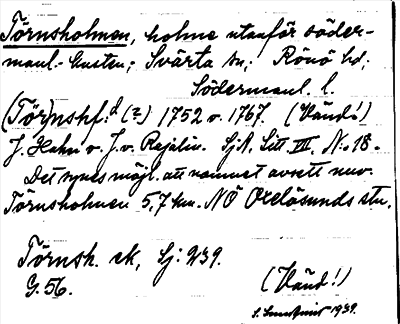 Törnsholmen, holme utanför söder-
manl. kusten; Svärta sn; Rönö hd;
Södermanl. l.
(Törnshf:d (?) 1752 o. 1767. (Vänd!)
J. Hahn o. J. v. Rajalin. SjK, Litt. VII. No 18.
Det synes möjl. att namnet avsett nuv.
Törnsholmen 5,7 km. NÖ Oxelösunds stn.
Törnsh. ek, Sj: 239.
G. 56.
(Vänd!)
1939.